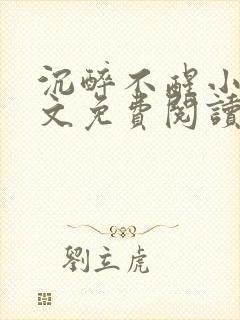 沉醉不醒小
文免費閱讀
劉立虎